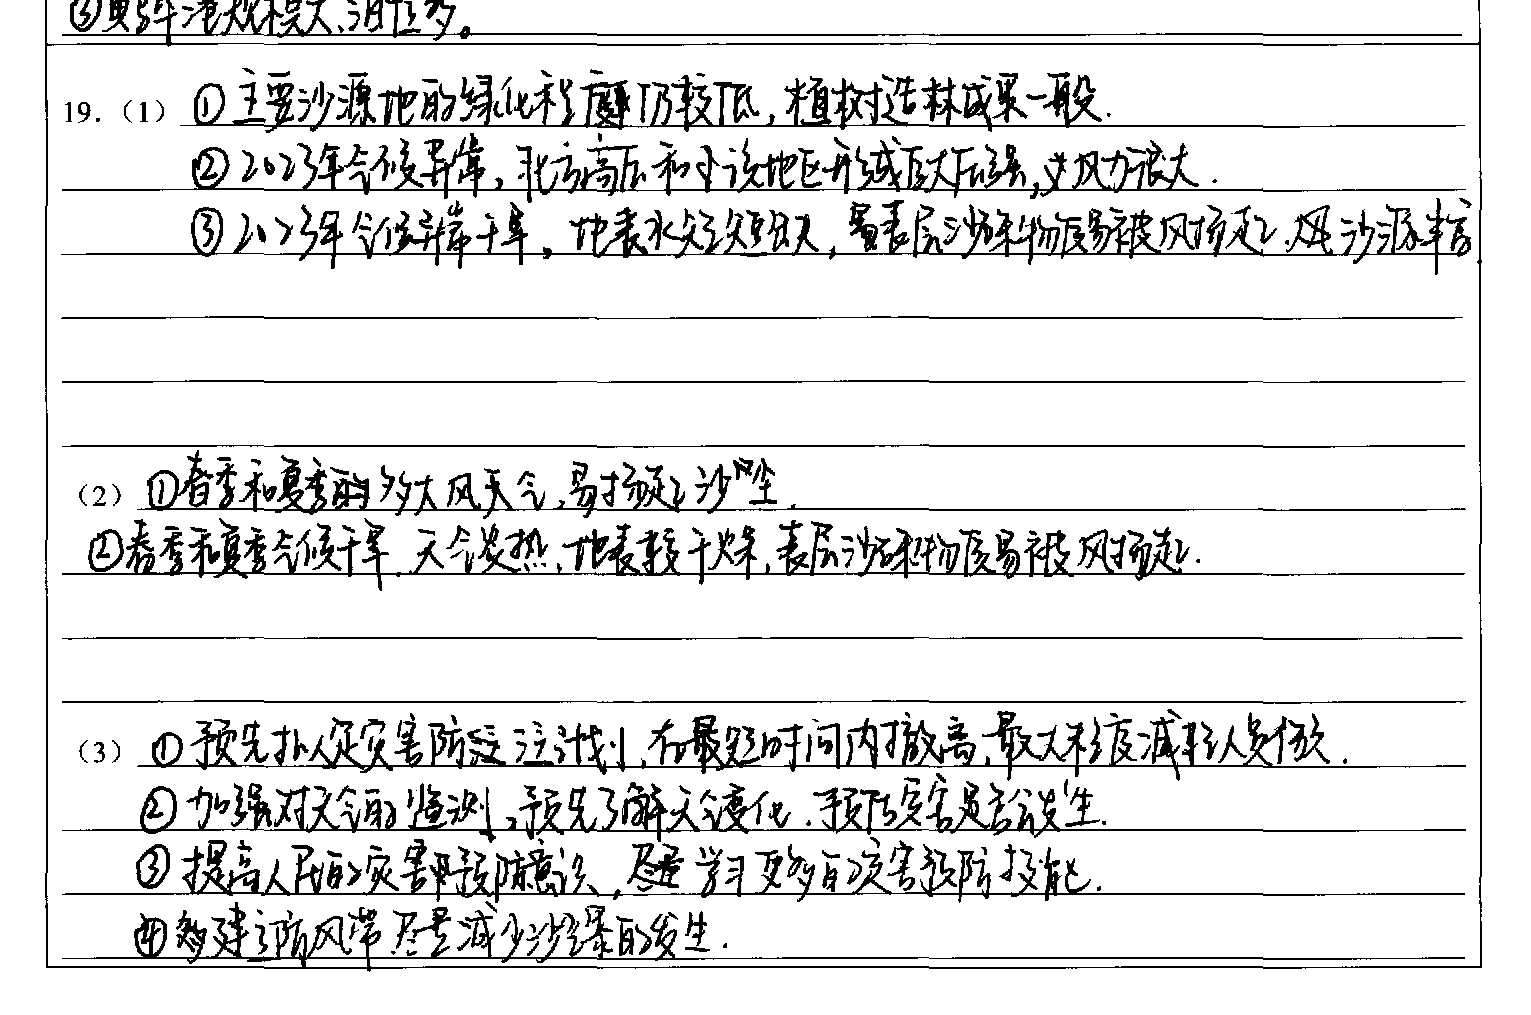 ③其新年港规模大、泊位多。
19.（1）①主要沙源地的绿化程度仍较低，植树造林成果一般.
②2023年气候异常，北方高压和该地区形成巨大压强，风力很大.
③2023年气候异常干旱。地表水分短缺，表层沙砾物质易被风扬起.沙源丰富
（2）①春季和夏季的多大风天气，易扬起沙尘.
②春季和夏季气候干旱.天气炎热.地表较干燥，表层沙砾物质易被风扬起.
（3）①预先拟定灾害防计划，在最短时间内撤离，最大程度减轻人员伤亡.
②加强对天气的监测，预先了解天气变化.预防灾害是否会发生.
③提高人民的灾害预防意识，尽量学习更多的灾害预防技能.
④多建立防风带尽量减少沙尘暴的发生.